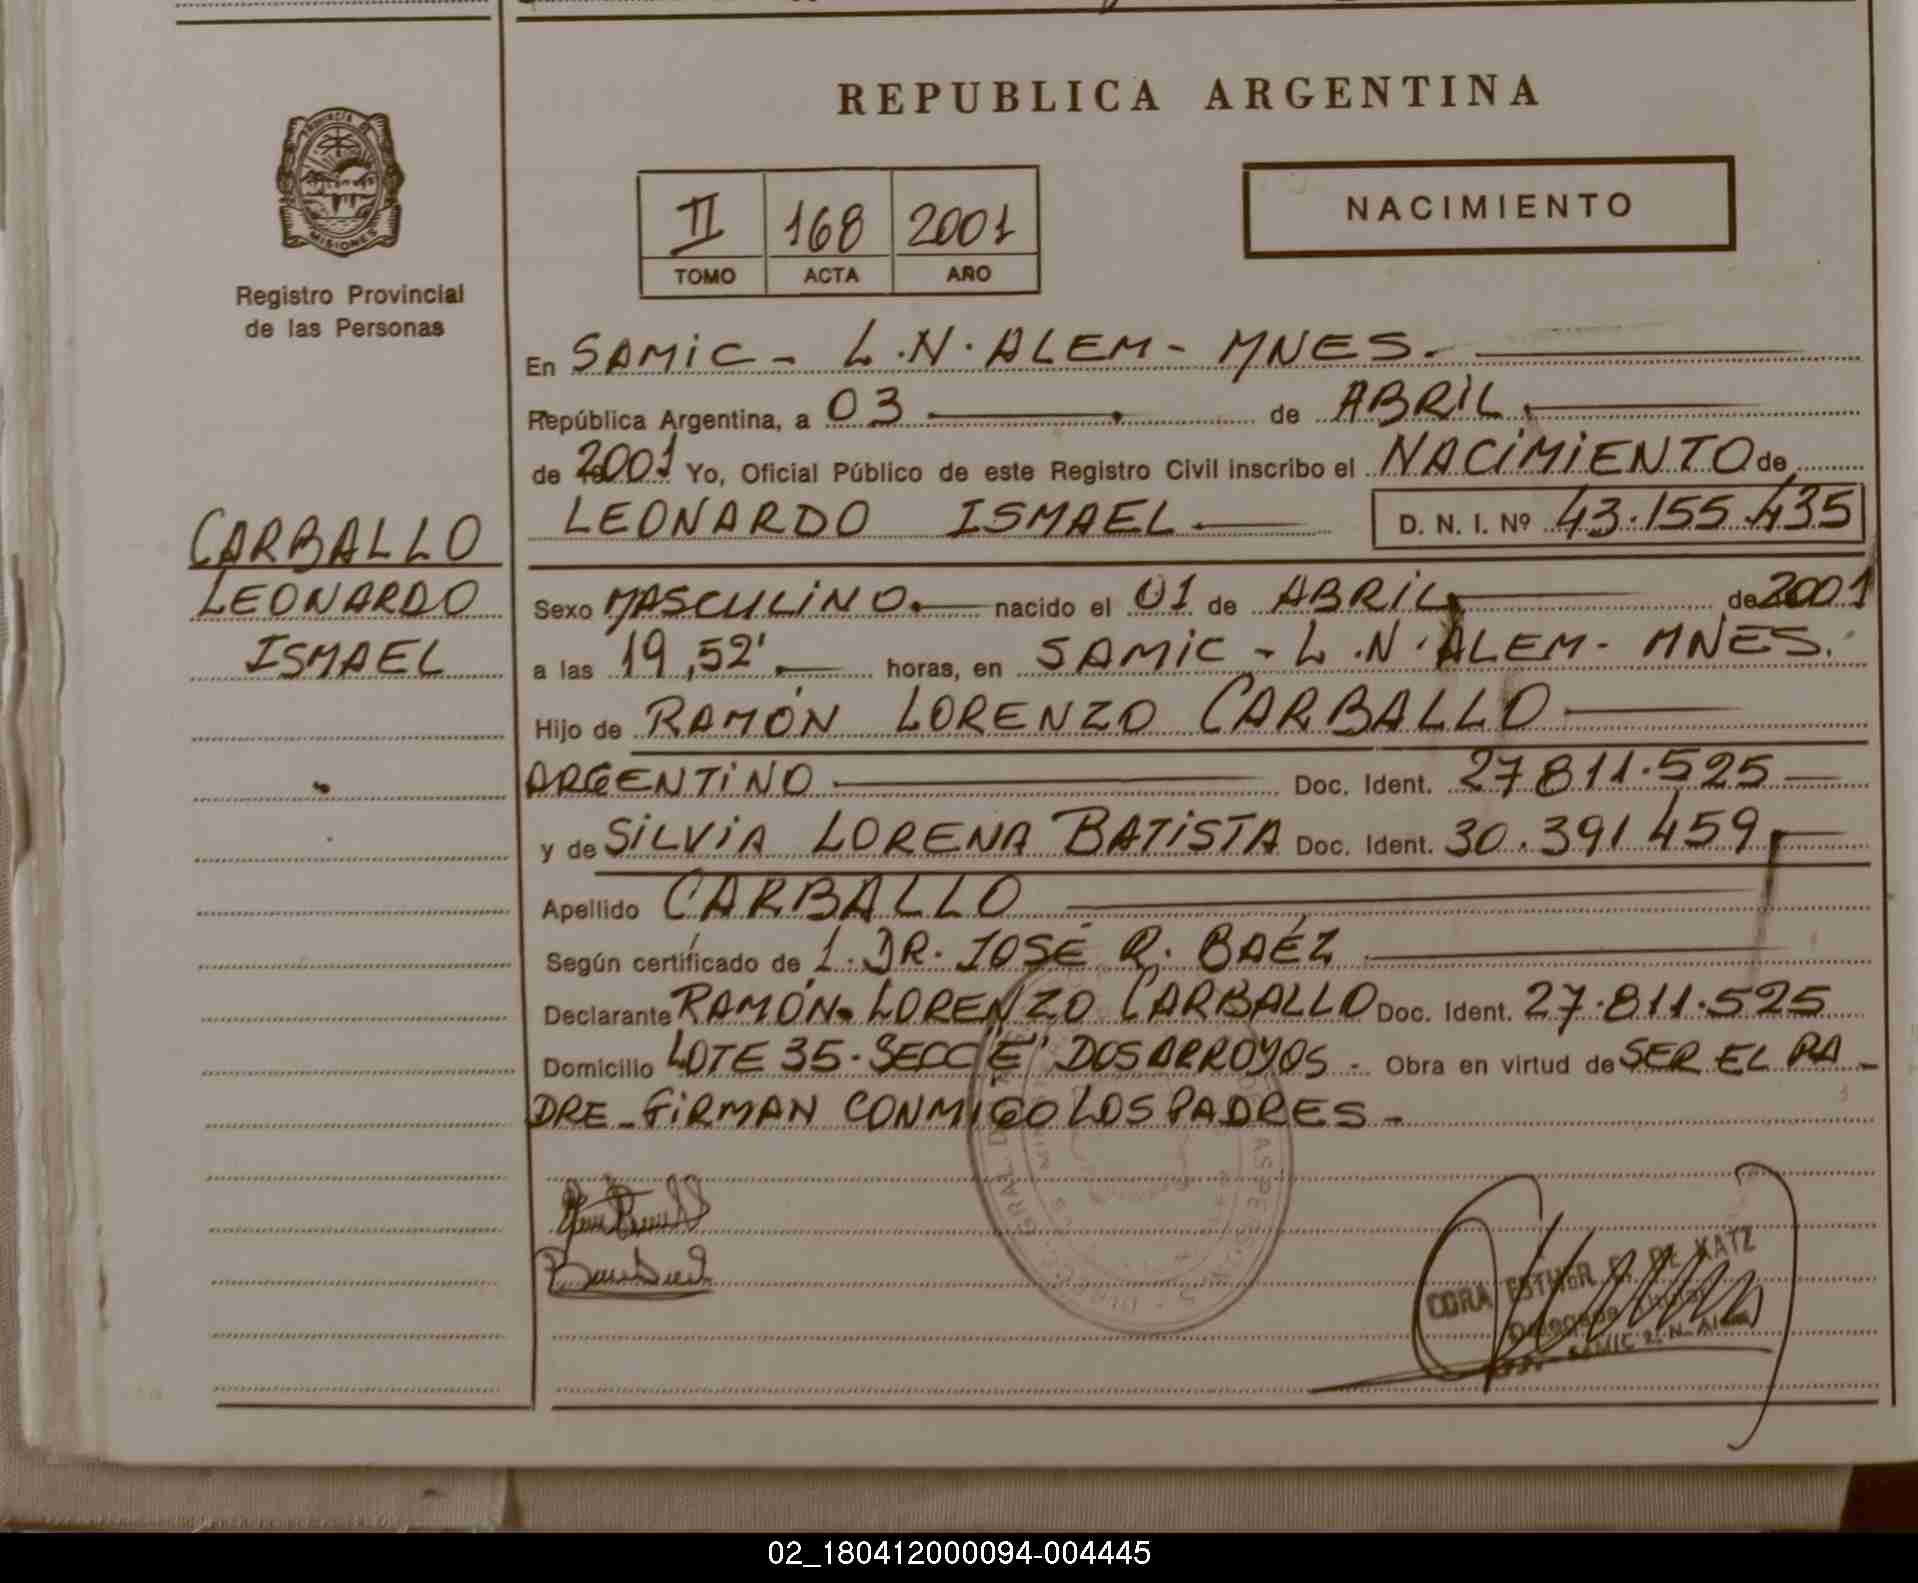 REPUBLICA ARGENTINA
PROVINCIA DE
MISIONES
Registro Provincial
de las Personas
II 168 2001
TOMO ACTA AÑO
NACIMIENTO
En SAMIC - L.N. ALEM - MNES.
República Argentina, a 03 de ABRIL
de 2001 Yo, Oficial Público de este Registro Civil inscribo el NACIMIENTO de
LEONARDO ISMAEL D. N. I. Nº 43.155.435
CARBALLO
LEONARDO
ISMAEL
Sexo MASCULINO. nacido el 01 de ABRIL de 2001
a las 19,52'. horas, en SAMIC - L.N. ALEM - MNES.
Hijo de RAMÓN LORENZO CARBALLO
ARGENTINO Doc. Ident. 27811.525
y de SILVIA LORENA BATISTA Doc. Ident. 30.391.459
Apellido CARBALLO
Según certificado de 1. DR. JOSÉ R. BAÉZ
Declarante RAMÓN LORENZO CARBALLO Doc. Ident. 27.811.525
Domicilio LOTE 35 - SECC "E" DOS ARROYOS - Obra en virtud de SER EL PA-
DRE - FIRMAN CONMIGO LOS PADRES -
CORA ESTHER E. DE KATZ
SAMIC L. N. Alem
02_180412000094-004445